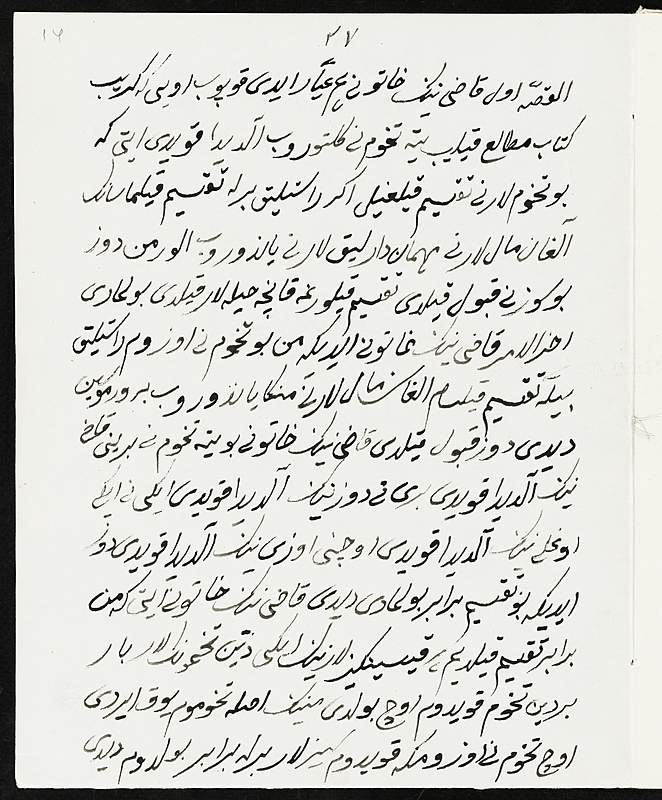 ۲۷
القصه اول قاضی نینک خاتونی هم عیّار ایدی قویوب اویکا کریب
کتاب مطالع قیلیب یته تخوم نی کلتوروب آلدیدا قویدی ایتی که
بو تخوم لارنی تقسیم قیلغیل اکر راستلیق برله تقسیم قیلماسانک
آلغان مال لارنی مهمان دارلیق لارنی یاندوروب الورمن دوز
بو سوزنی قبول قیلدی تقسیم قیلورغه قانچه حیله لار قیلدی بولمادی
اخر الامر قاضی نینک خاتونی ایدیکه من بو تخوم نی اوزوم راستلیق
بیله تقسیم قیلسام الغان مال لارنی منکا یاندوروب برورموسین
دیدی دوز قبول قیلدی قاضی نینک خاتونی بو یته تخوم نی برینی قاضی
نینک آلدیدا قویدی بری نی دوزنینک آلدیدا قویدی ایکی نی ایکی
اوغلی نینک آلدیدا قویدی اوچنی اوزی نینک آلدیدا قویدی دوز
ایدیکه بو تقسیم برابر بولمادی دیدی قاضی نینک خاتونی ایتی که من
برابر تقسیم قیلدیم هر قیسینکیزلارنینک ایکی دین تخمونک لار بار
بردین تخوم قویدوم اوچ بولدی مینینک اصله تخوموم یوق ایردی
اوچ تخوم نی اوزومکه قویدوم سیزلار برله برابر بولدوم دیدی